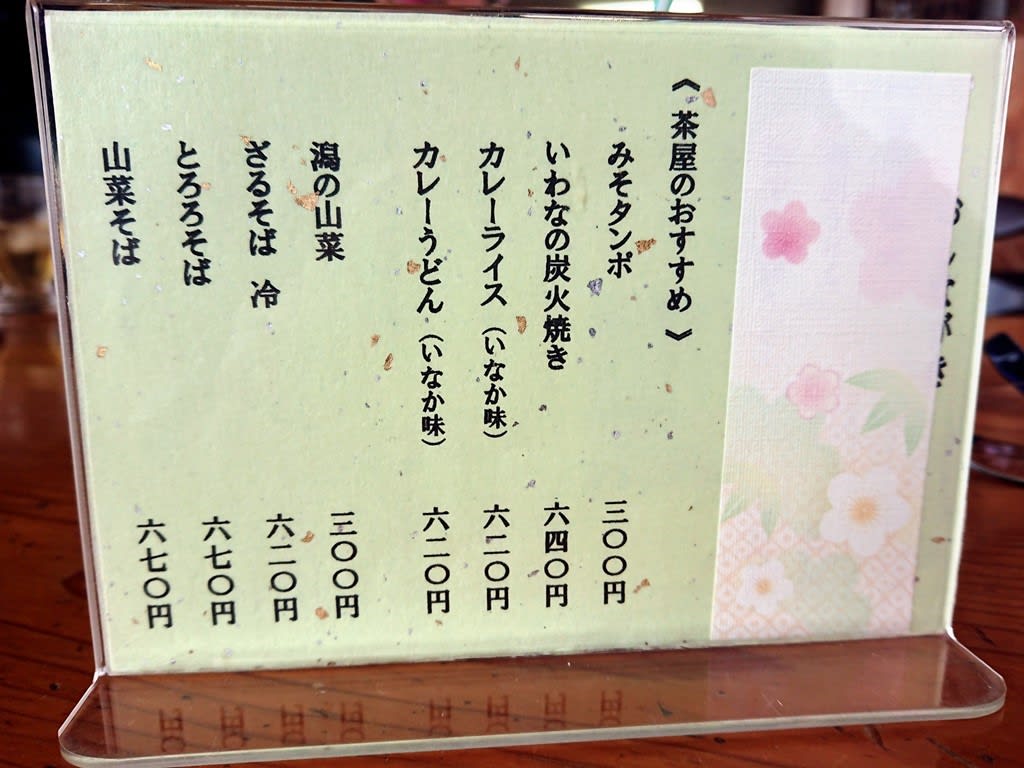 《茶屋のおすすめ》
みそタンポ 三〇〇円
いわなの炭火焼き 六四〇円
カレーライス（いなか味） 六二〇円
カレーうどん（いなか味） 六二〇円
潟の山菜 三〇〇円
ざるそば 冷 六二〇円
とろろそば 六七〇円
山菜そば 六七〇円